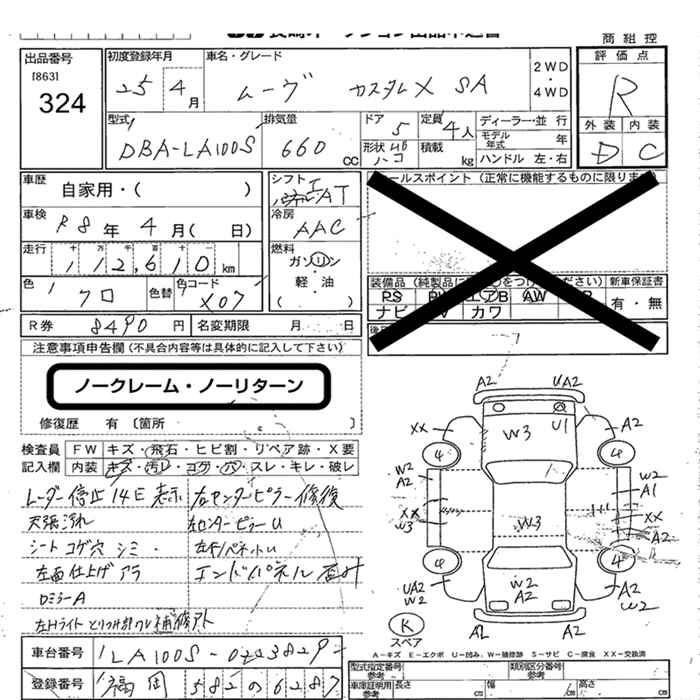 商組控
出品番号
[863]
324
初度登録年月
25 4月
車名・グレード
ムーヴ カスタムX SA
2WD
・
4WD
評価点
R
外装 内装
D C
型式
DBA-LA100S
排気量
660 CC
ドア
5
定員
4人
形状
積載 kg
ディーラー・並 行
モデル年式 年
ハンドル 左・右
車歴
自家用・( )
車検
R8年 4月( 日)
走行
十 万 千 百 十 一
112,610 km
シフト
AT
冷房
AAC
燃料
ガソリン
軽・油
( )
色
クロ
色替
色コード
X07
セールスポイント(正常に機能するものに限ります)
装備品
新車保証書
PS
エアB
AW
ナビ
カワ
有・無
R券 8490円
名変期限 月 日
注意事項申告欄(不具合内容等は具体的に記入して下さい)
ノークレーム・ノーリターン
修復歴 有 〔箇所 〕
検査員記入欄
FW キズ・飛石・ヒビ割・リペア跡・X要
内装 キズ・汚レ・コゲ・穴・スレ・キレ・破レ
レーダー停止 14E 表示
右センターピラー修復
天張汚れ
左センターピラーU
シート コゲ穴 シミ
左面仕上げアラ
エンドパネル歪み
ロミラーA
左Hライト
車台番号
LA100S-0243829
登録番号
福岡 582 の 6287
A2 UA2
XX W3 U1 A2
4 4
W2 A2
W2 A1
XX W3
W3
XX
A2
4 4
UA2 W2
W2 A2
A2 W2
A2 A2
K
スペア
A-キズ E-エクボ U-凹み W-補修跡 S-サビ C-腐食 XX-交換済
型式指定番号 参考
類別区分番号 参考
車庫証明用参考 長さ cm 幅 cm 高さ cm